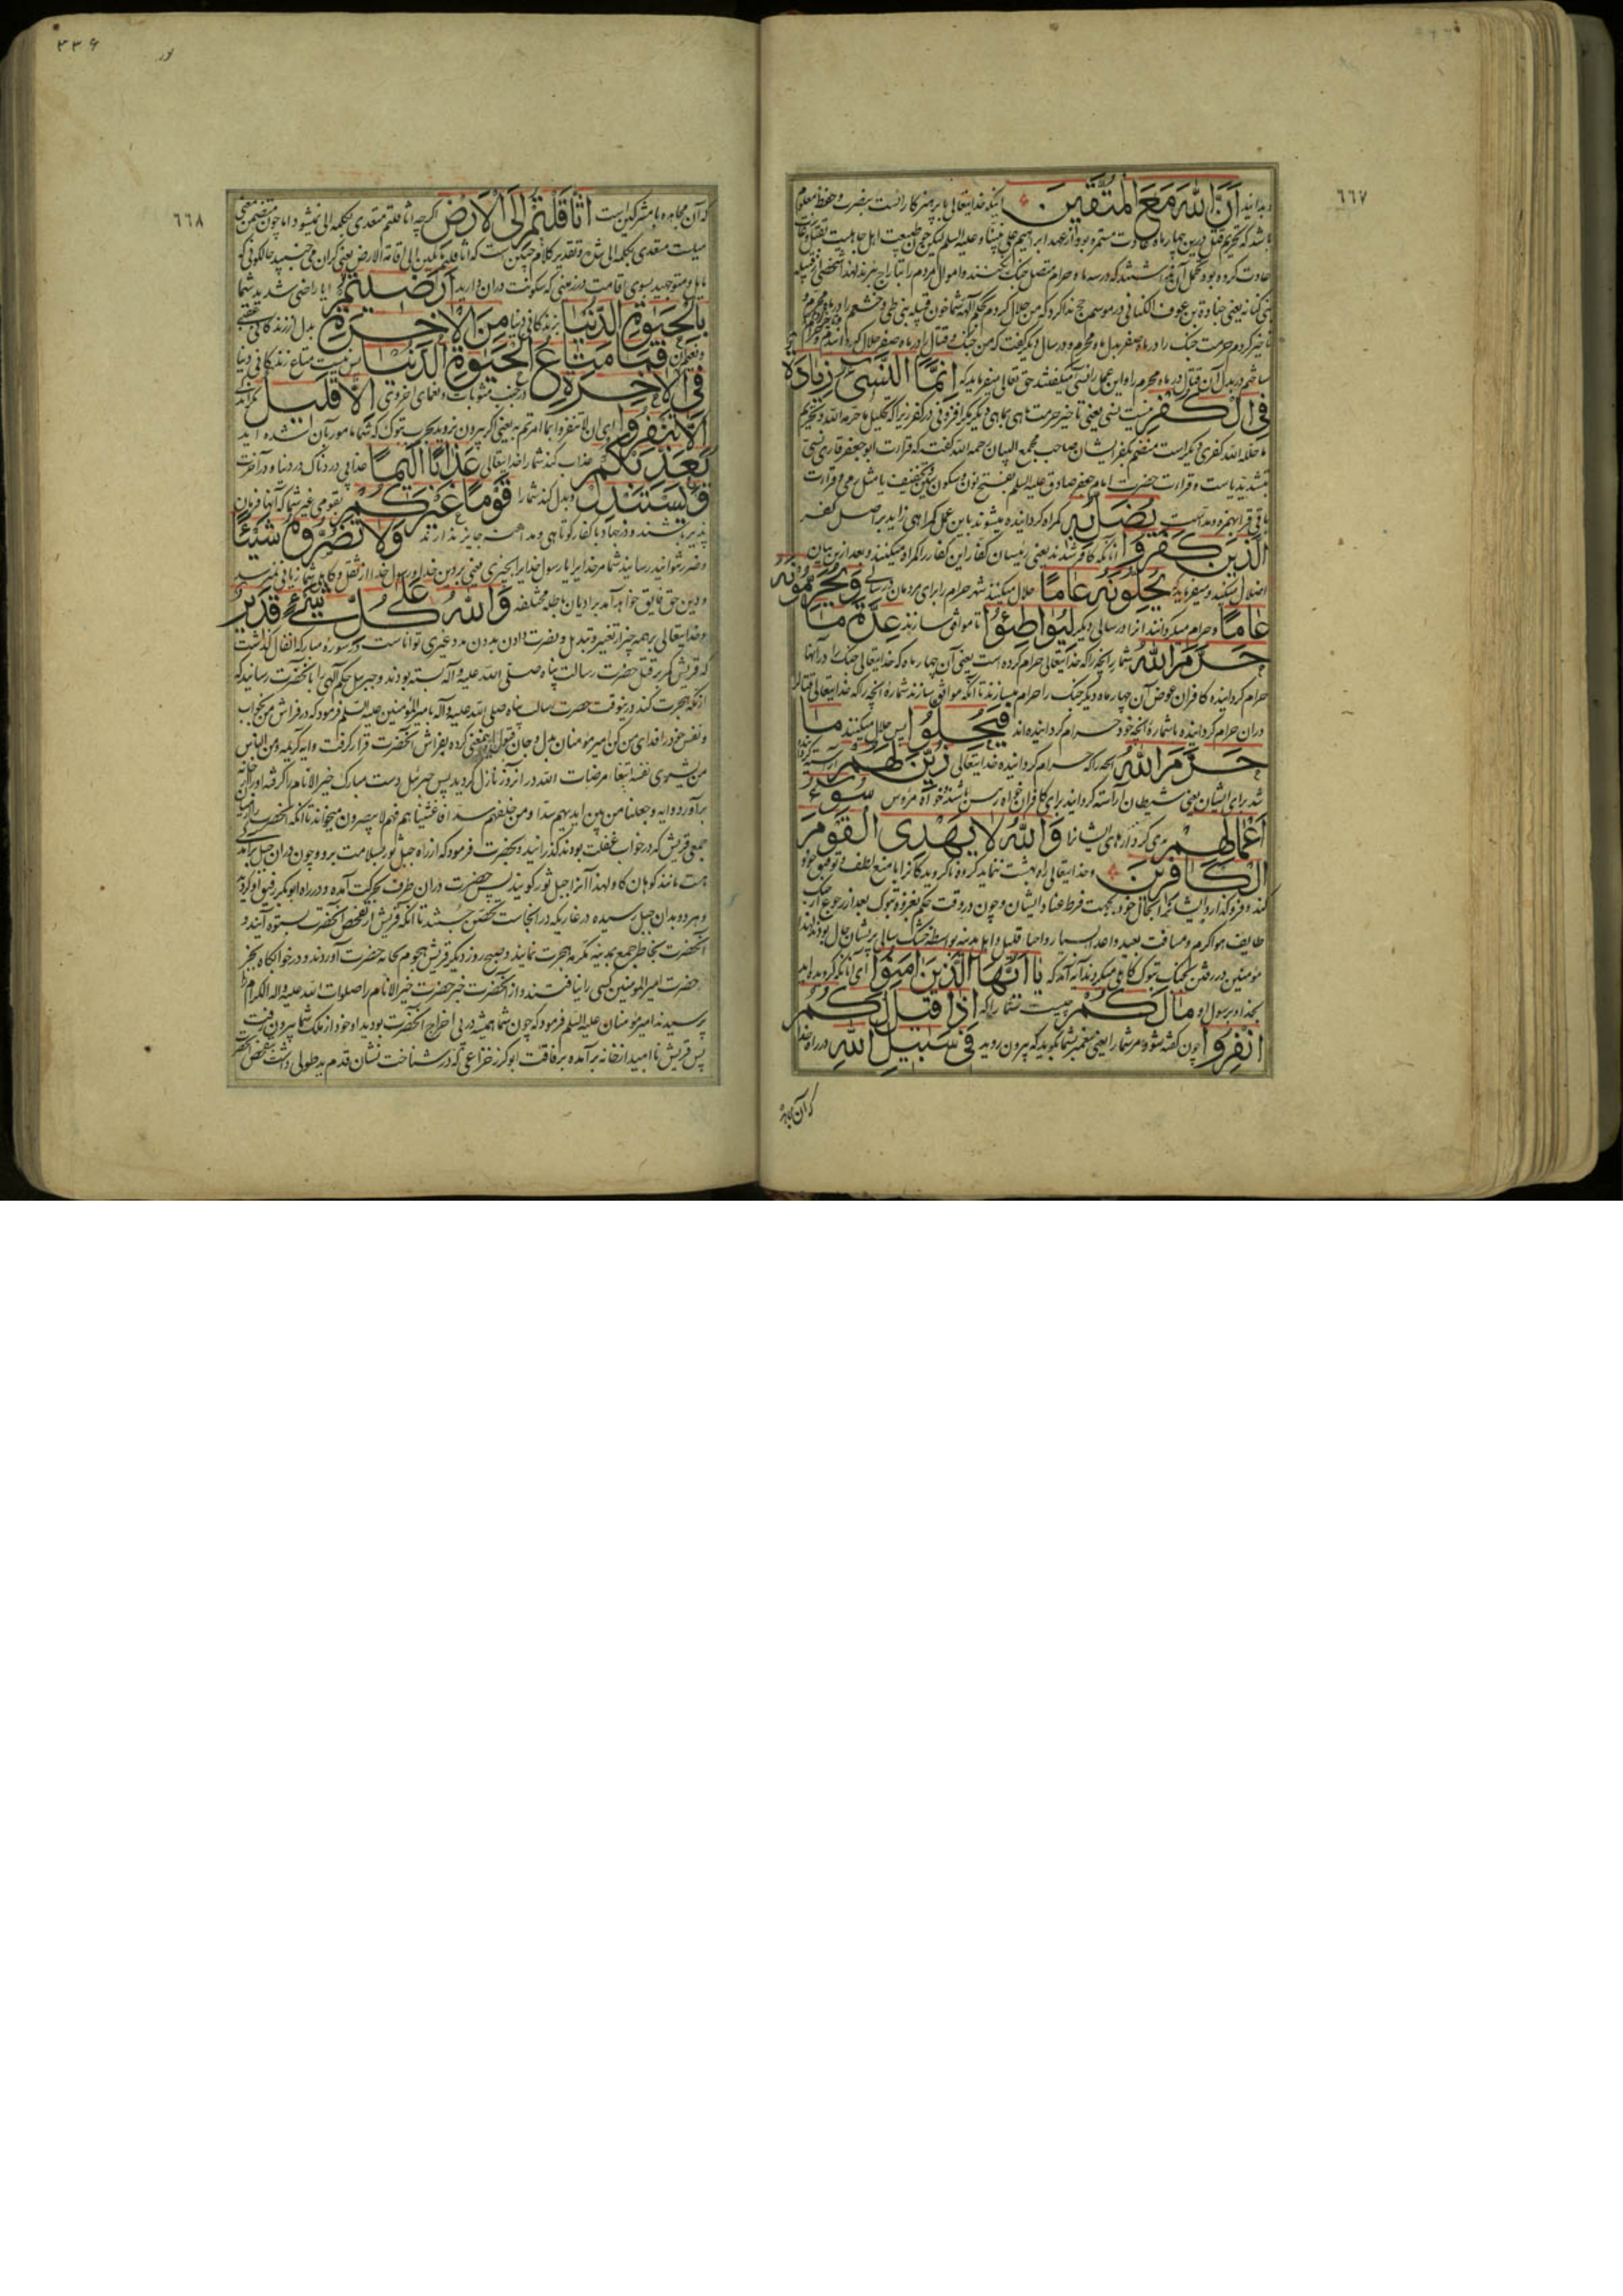 ٦٦٧
و بدانید اَنَّ اللّٰهَ مَعَ الْمُتَّقِينَ اینکه خدایتعالی با پرهیزکارانست بنصرت و حفظ معلوم
باشد که تحریم قتل درین چهار ماه عادت مستمره بود و از عهد ابراهیم علی نبینا و علیه السلم لیکن چون طبیعت اهل جاهلیت بقتال و غارت
عادت کرده بود که در سه ماه حرام متصل جنک نکنند و اموال مردم را بتاراج نبرند لهذا شخصی از قبیله
بنی کنانه یعنی جناده بن عوف الکنانی در موسم حج ندا کرد که من حلال کردم بحکم آلهه شما خون قبیله بنی طی و خثعم را در ماه محرم
تاخیر کردم حرمت جنک را در ماه صفر بدل ماه محرم و در سال دیگر گفت که من جنک و قتال را در ماه صفر حلال کردانیدم
ساختم در بدل آن قتال در ماه محرم را و این عمل را نسی میگفتند حق تعالی میفرماید که اِنَّمَا النَّسِيءُ زِيَادَةٌ
فِي الْكُفْرِ نیست نسی یعنی تاخیر حرمت ماهی بماهی دیگر مکر افزونی در کفر زیرا که تحلیل ما حرمه الله و تحریم
ما حلله الله کفری دیگر است منضم بکفر ایشان صاحب مجمع البیان رحمه الله گفت که قرائت ابو جعفر قاری نسی
بتشدید یاست و قراءت حضرت امام جعفر صادق علیه السلم بفتح نون و سکون سین و تخفیف یا مثل رمی و قراءت
باقی قرا بهمزه و مد است يُضَلُّ بِهِ گمراه کردانیده میشوند باین عمل گمراهی زاید بر اصل کفر
الَّذِينَ كَفَرُوا آنانکه کافر شدند یعنی رئیسان کفار این کفار را گمراه میکنند و بعد ازین بیان
اضلال میکند و میفرماید که يُحِلُّونَهُ عَامًا حلال میکنند شهر حرام را برای مردمان در سالی وَيُحَرِّمُونَهُ
عَامًا و حرام میگردانند آنرا در سالی دیگر لِيُوَاطِئُوا تا موافق سازند عِدَّةَ مَا
حَرَّمَ اللّٰهُ شمار آنچه را که خدایتعالی حرام کرده است یعنی آن چهار ماه که خدایتعالی جنک را در آنها
حرام کردانیده کافران عوض آن چهار ماه دیگر جنک را حرام میسازند تا آنکه موافق سازند شماره آنچه را که خدایتعالی قتال
دران حرام کردانیده با شماره آنچه خود حرام کردانیده اند فَيُحِلُّوا پس حلال میکنند مَا
حَرَّمَ اللّٰهُ آنچه را که حرام کردانیده خدایتعالی زُيِّنَ لَهُمْ آراسته کردانیده
شد برای ایشان یعنی شیطان آراسته کردانید برای کافران سُوءُ
اَعْمَالِهِمْ بدی کردارهای ایشانرا وَاللّٰهُ لَا يَهْدِي الْقَوْمَ
الْكَافِرِينَ و خدایتعالی راه بهشت ننماید گروه ناگرویدگانرا یا منع لطف و توفیق خود
کند و فرو گذارد ایشانرا بحال خود بجهت فرط عناد ایشان و چون در وقت حکم بغزوه تبوک بعد از رجوع از جنک
طایف هوا گرم و مسافت بعید و اعدا بسیار و احبا قلیل و اهل مدینه بواسطه خشک سالی پریشان حال بودند لهذا
مومنین در رفتن بجنک تبوک کاهلی میکردند آیه آمد که يَا اَيُّهَا الَّذِينَ اٰمَنُوا ای آنانکه گرویده اید
بخدا و برسول او مَا لَكُمْ چیست شما را که اِذَا قِيلَ لَكُمُ
انْفِرُوا چون گفته شود مر شما را یعنی پیغمبر بشما بگوید که بیرون روید فِي سَبِيلِ اللّٰهِ در راه خدا
که آن مجاهده
٣٣۶
٦٦٨
که آن مجاهده با مشرکین است اثَّاقَلْتُمْ اِلَى الْاَرْضِ اگرچه اثاقلتم متعدی بکلمه الی نمیشود اما چون متضمن معنی
میلست متعدی بکلمه الی شد و تقدیر کلام چنین است که اثاقلتم مائلین الی اقامة الارض یعنی گران می جنبید حالکونی که
مایل و متوجهید بسوی اقامت در زمینی که سکونت دران دارید اَرَضِيتُمْ ایا راضی شدید شما
بِالْحَيٰوةِ الدُّنْيَا بزندگانی دنیا مِنَ الْاٰخِرَةِ بدل از زندگانی عقبی
و نعیم آن فَمَا مَتَاعُ الْحَيٰوةِ الدُّنْيَا پس نیست متاع زندگانی دنیا
فِي الْاٰخِرَةِ در جنب مثوبات و نعمای اخروی اِلَّا قَلِيلٌ مگر اندک
اِلَّا تَنْفِرُوا ای ان لا تنفروا بما امرتم به یعنی اگر بیرون نروید بحرب تبوک که شما مامور بآن شده اید
يُعَذِّبْكُمْ عذاب کند شما را خدایتعالی عَذَابًا اَلِيمًا عذابی دردناک در دنیا و در آخرت
وَيَسْتَبْدِلْ و بدل کند شما را قَوْمًا غَيْرَكُمْ بقومی غیر شما که آنها فرمان
پذیر باشند و در جهاد با کفار کوتاهی و مداهنت جایز ندارند وَلَا تَضُرُّوهُ شَيْئًا
و ضرر نتوانید رسانید شما مر خدایرا یا رسول خدایرا بچیزی یعنی بر دین خدا و رسول خدا از ثقل و کاهلی شما زیانی نمیرسد
و دین حق فایق خواهد آمد بر ادیان باطله مختلفه وَاللّٰهُ عَلٰى كُلِّ شَيْءٍ قَدِيرٌ
و خدایتعالی بر همه چیز از تغییر و تبدیل و نصرت دادن بدون مدد غیری تواناست و در سوره مبارکه انفال گذشت
که قریش کمر بر قتل حضرت رسالت پناه صلی الله علیه و آله بسته بودند و جبرئیل حکم الهی را بآنحضرت رسانید که
از مکه هجرت کند و درینوقت حضرت رسالت پناه صلی الله علیه و آله بامیرالمؤمنین علیه السلم فرمود که در فراش من بخواب
و نفس خود را فدای من کن امیر مومنان بدل و جان قبول اینمعنی کرده بفراش آنحضرت قرار گرفت و ایه کریمه و من الناس
من یشری نفسه ابتغاء مرضات الله در انروز نازل گردید پس جبرئیل دست مبارک خیر الانام را گرفته از خانه
برآورد و ایه و جعلنا من بین ایدیهم سدا و من خلفهم سدا فاغشیناهم فهم لا یبصرون میخواند تا آنکه آنحضرت را از میان
جمعی قریش که در خواب غفلت بودند گذرانید و بحضرت فرمود که از راه جبل ثور بسلامت برو و چون دران جبل برآمدگی
هست مانند کوهان گاو لهذا آنرا جبل ثور گویند پس حضرت دران طرف بحرکت آمده و در راه ابوبکر رفیق او گردید
و هر دو بدان جبل رسیده در غاریکه در انجاست تحصن جستند تا آنکه قریش از تفحص آنحضرت بستوه آیند و
آنحضرت بخاطر جمع بمدینه مکرمه هجرت نمایند و صبح روز دیگر قریش هجوم بخانه حضرت آوردند و در خوابگاه بجز
حضرت امیرالمومنین کسی را نیافتند و از آنحضرت خبر حضرت خیر الانام را صلوات الله علیه و اله الکرام
پرسیدند امیر مومنان علیه السلم فرمود که چون شما همیشه در پی اخراج آنحضرت بودید او خود از ملک شما بیرون رفت
پس قریش ناامید از خانه برآمده برفاقت ابو کرز خزاعی که در شناخت نشان قدم ید طولی داشت بتفحص آنحضرت